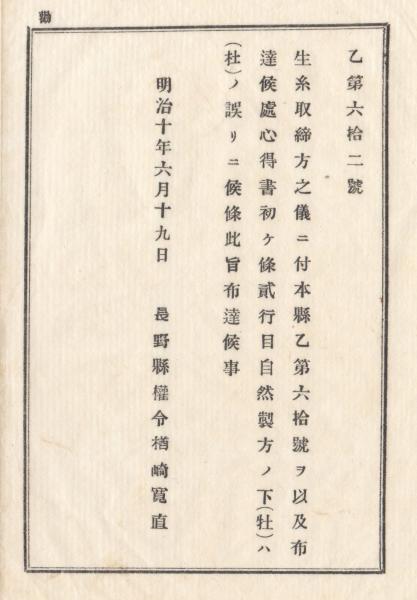 勸
乙第六拾二號
生糸取締方之儀ニ付本縣乙第六拾號ヲ以及布
達候處心得書初ケ條貳行目自然製方ノ下(牡)ハ
(杜)ノ誤リニ候條此旨布達候事
明治十年六月十九日 長野縣權令楢崎寬直